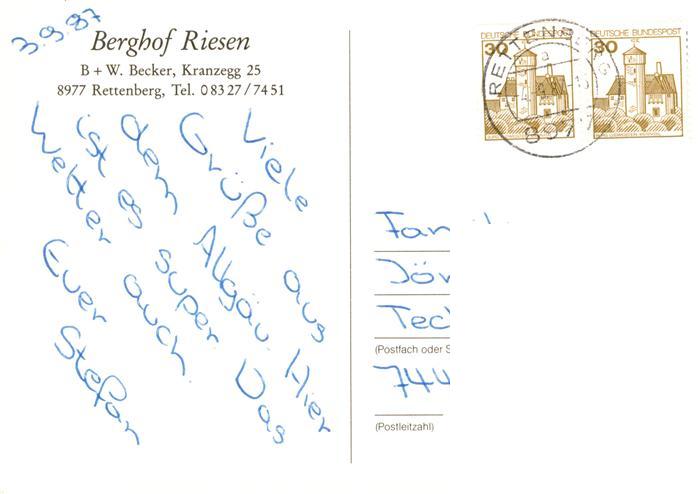 3.9.87
Berghof Riesen
B + W. Becker, Kranzegg 25
8977 Rettenberg, Tel. 08327/7451
Viele
Grüße aus
dem Allgäu. Hier
ist es super. Das
Wetter auch.
Euer
Stefan
DEUTSCHE BUNDESPOST
30
DEUTSCHE BUNDESPOST
30
8977
Fam
Dör
Tec
(Postfach oder S
744
(Postleitzahl)